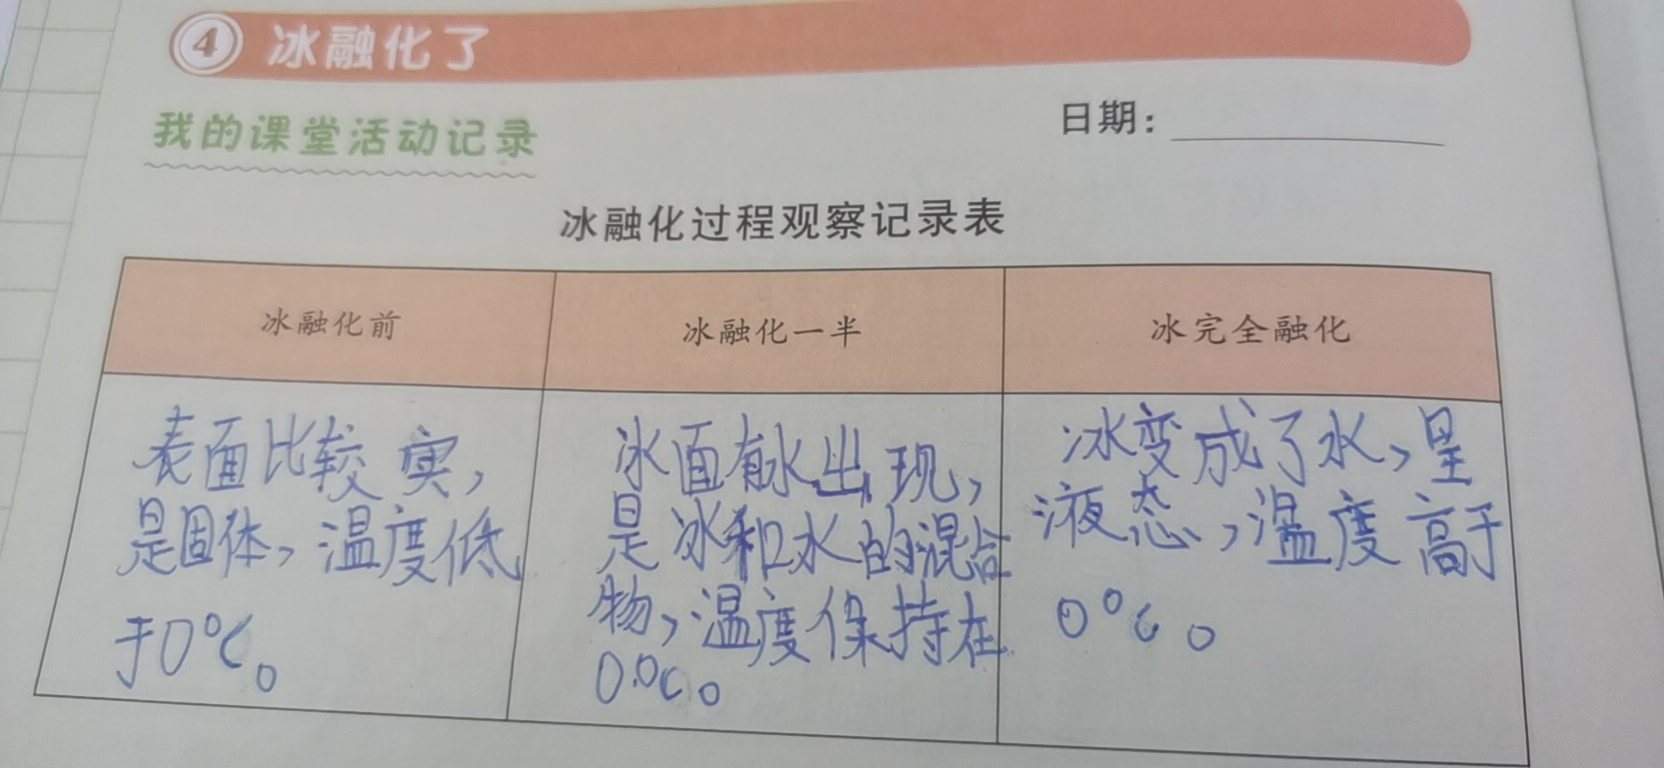 4 冰融化了
我的课堂活动记录
日期：
冰融化过程观察记录表
冰融化前
冰融化一半
冰完全融化
表面比较实，
是固体，温度低
于0℃。
冰面有水出现，
是冰和水的混合
物，温度保持在
0℃。
冰变成了水，呈
液态，温度高于
0℃。